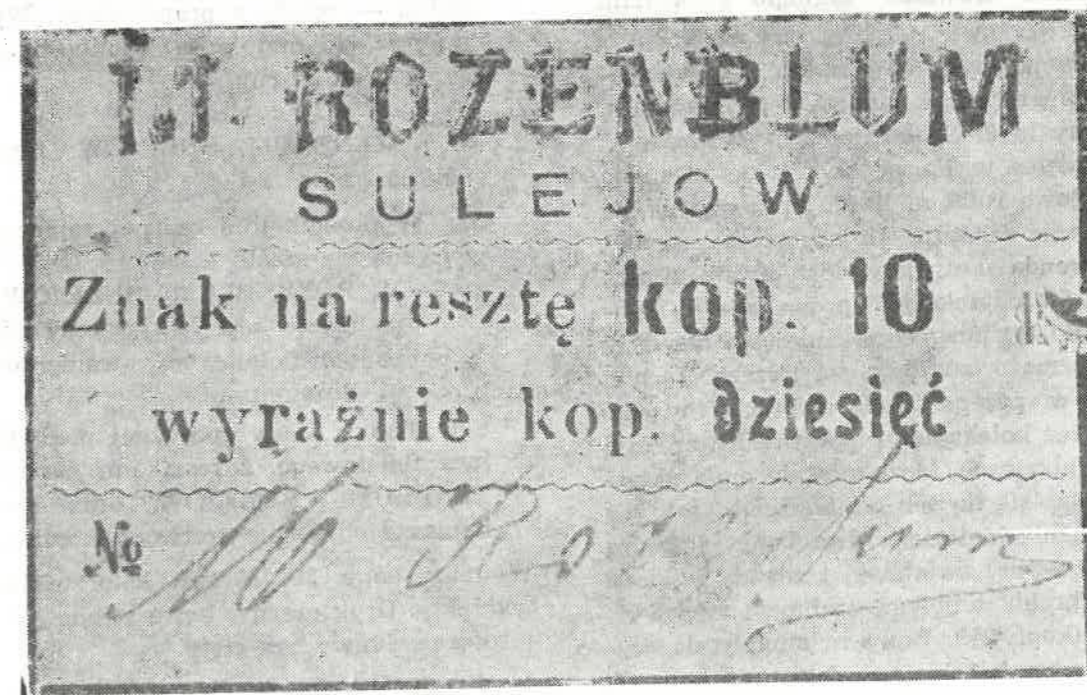 M. ROZENBLUM
SULEJOW
Znak na resztę kop. 10
wyraźnie kop. dziesięć
№ M Rozenblum